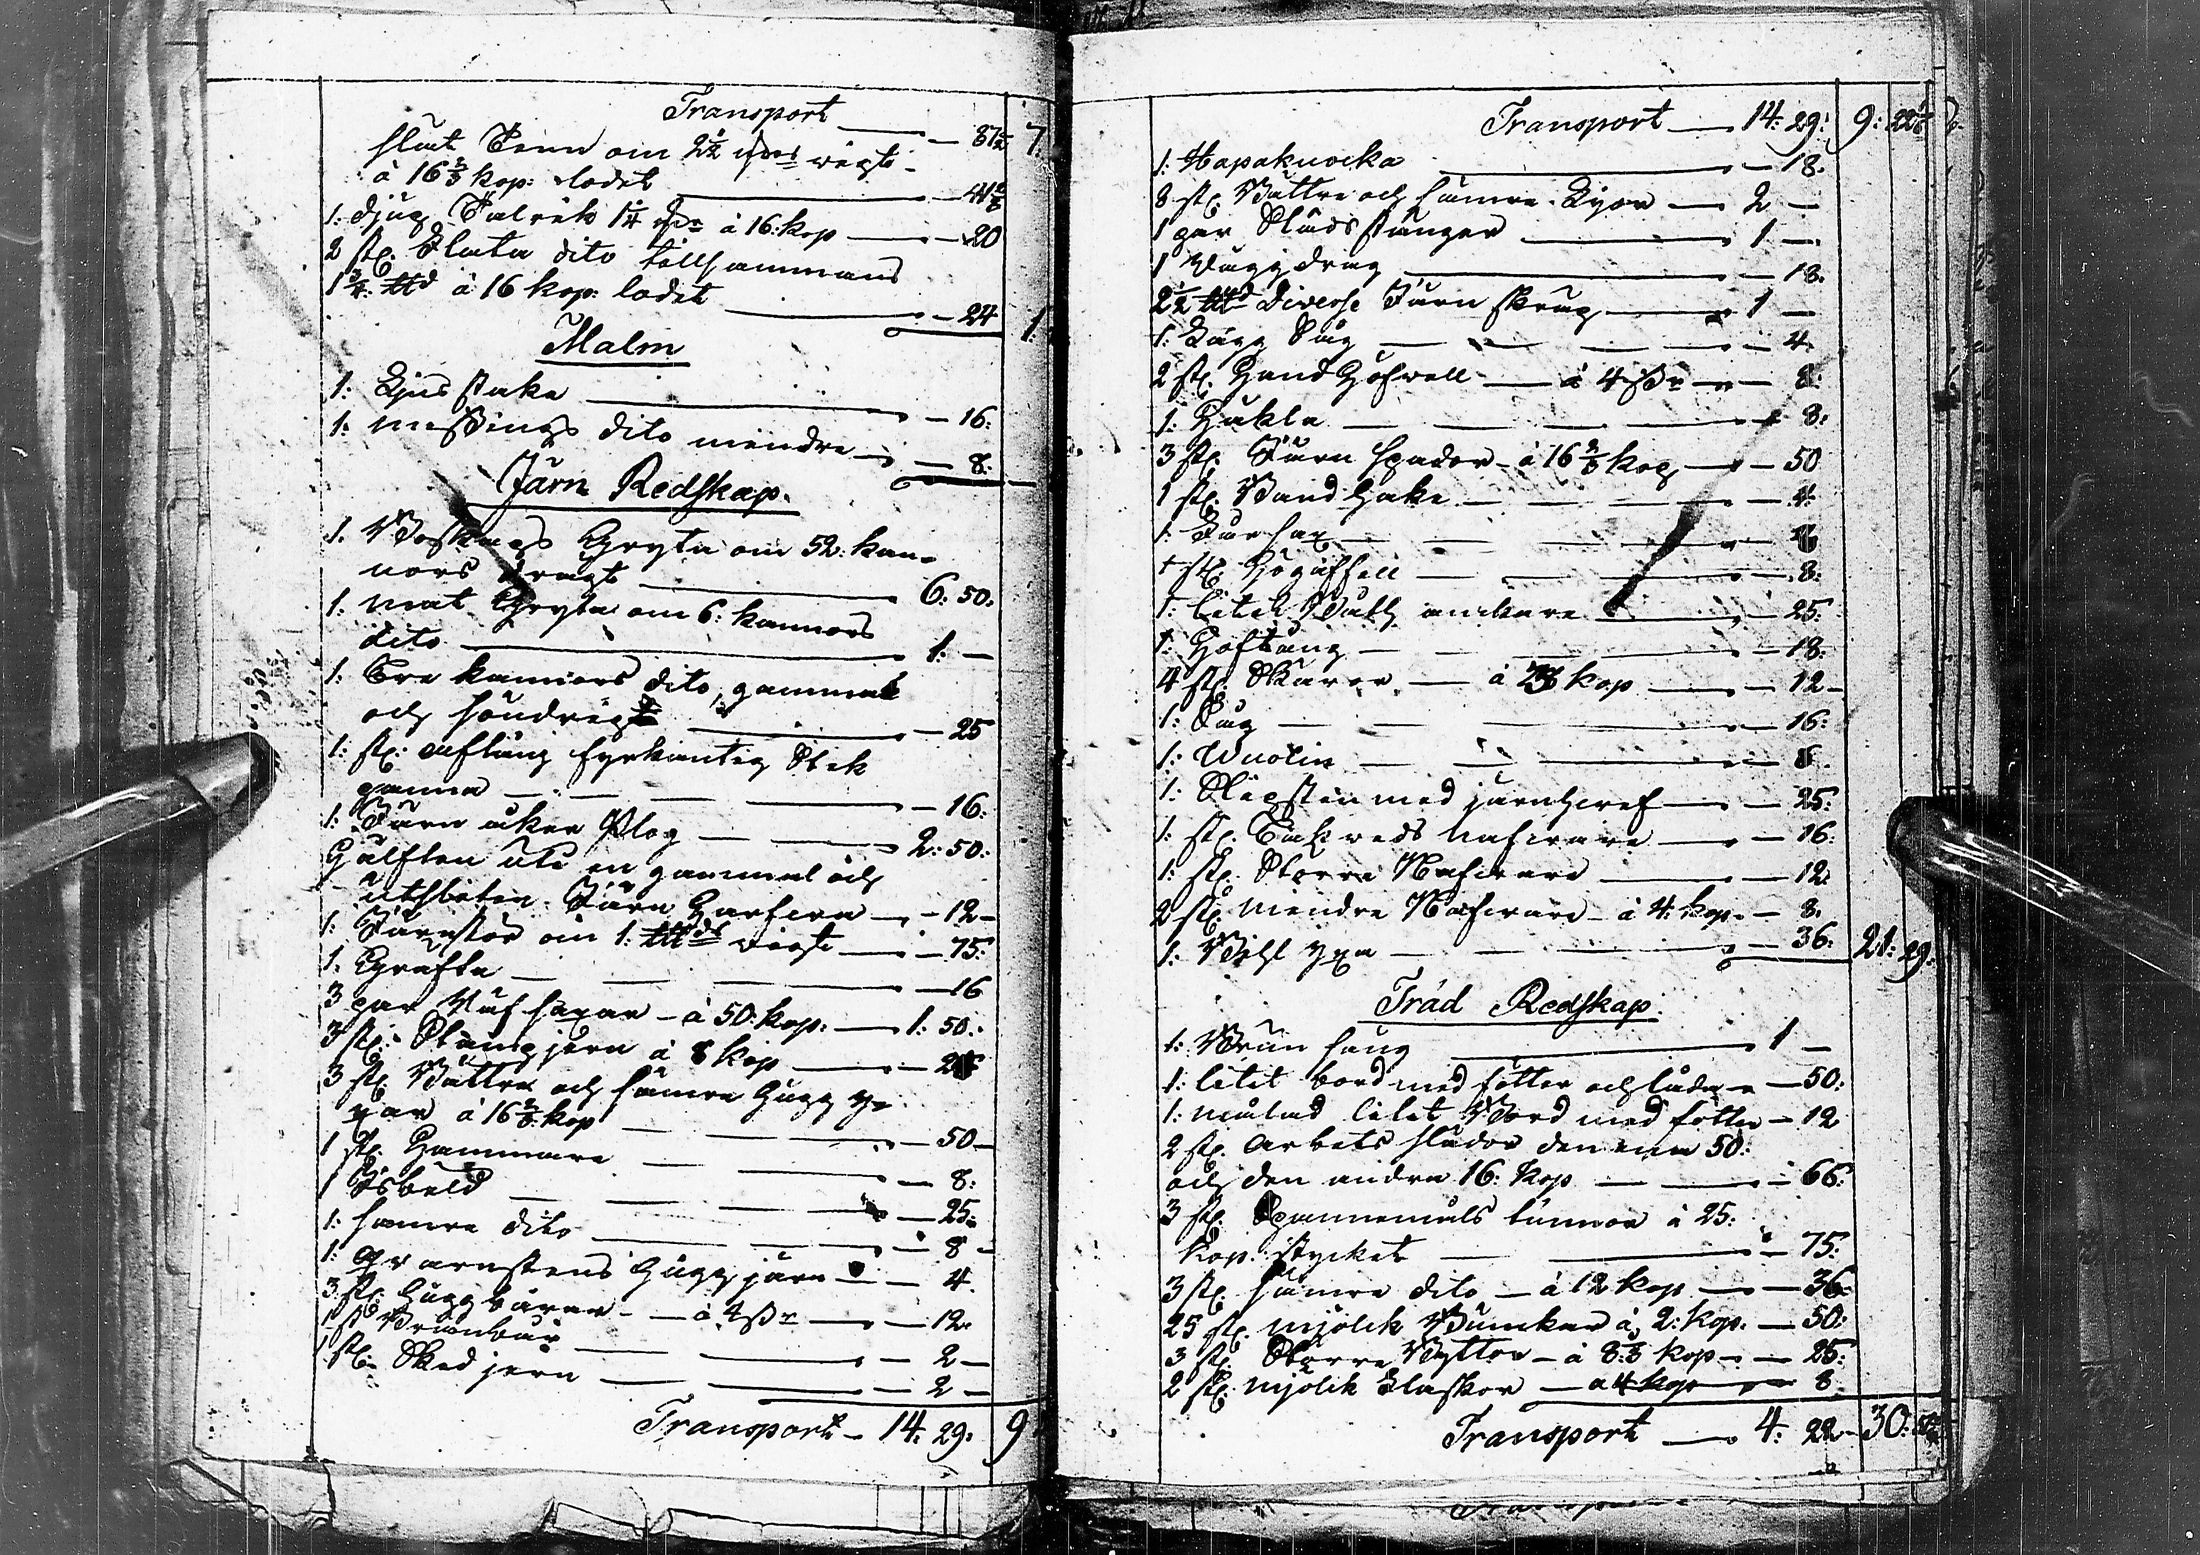 Transport — 87½ 7.
slat Tenn om 2½ wigt
à 16⅔ kop: lodet — 41⅔
1. djup Talrik 1¼ à 16: kop — 20
2 st. Flata dito tillsammans
1¾. ttd à 16 kop: lodet — 24 1:
Malm
1: Ljusstake — 16:
1: messings dito mindre — 8:
Järn Redskap.
1. Gryta om 52: kan-
nors — 6: 50:
1: mat Gryta om 6: kannors
dito — 1: —
1: Tre kannors dito, gammal
och söndrig — 25
1: st: aflång fyrkantig Stek
panna — 16:
1: Järn åker Plog — 2: 50:
Hälften uti en gammal och
utsliten Järn Harf — 12 —
1: Järnstör om 1: wigt — 75:
1: Gräfta — 16
3 par à 50: kop: — 1: 50:
3 st: Stämpjern à 8 kop — 25
3 st. Bättre och sämre Hugg yx-
xar à 16⅔ kop — 50 —
1 st. Hammare — 8:
1 Isbild — 25:
1: samre dito — 8 —
1: qvarnstens Hugg järn — 4.
3. st. — à 4 — 12.
1 st — 2 —
1 st: Sked jern — 2 —
Transport — 14: 29: 9
Transport — 14: 29: 9: 22⅙
1: Hapaknocka — 18.
8 st. Bättre och sämre Lyor — 2 —
1 par Släds stänger — 1 —
1 drag — 18.
2½ ttd Diverse Järn skrap — 1 —
1: Lägg Såg — 4.
2 st. Hand — à 4 — 8:
1: Häkla — 8:
3 st: Järn spador — à 16⅔ kop — 50
1 st. Band Hake — 4:
1: sax
st. Högaffell — 8:
1: litet ankare — 25:
1: Hoftång — 18.
4 st. Skäror — à kop — 12 —
1: Såg — 16:
1: Wuolin — 8
1: Slipsten med järn — 25:
1: st. Nafware — 16:
1: st. Större Nafware — 12
2 st. mindre Nafware — à 4: kop. — 8.
1: Bihl yxa — 36: 21: 29:
Träd Redskap.
1: säng — 1 —
1: litet bord med fötter och låda — 50:
1: målad litet Bord med fötter — 12
2 st. arbets slädor den ena 50:
och den andra 16: kop — 66:
3 st. Spannemåls tunnor à 25:
kop: stycket — 75:
3 st. sämre dito — à 12 kop — 36:
25 st. mjölck Bunckar à 2: kop. — 50:
3 st. Större Byttor — à 8⅓ kop — 25:
2 st. mjölck Flaskor — à 4 kop — 8
Transport — 4: 22 — 30: